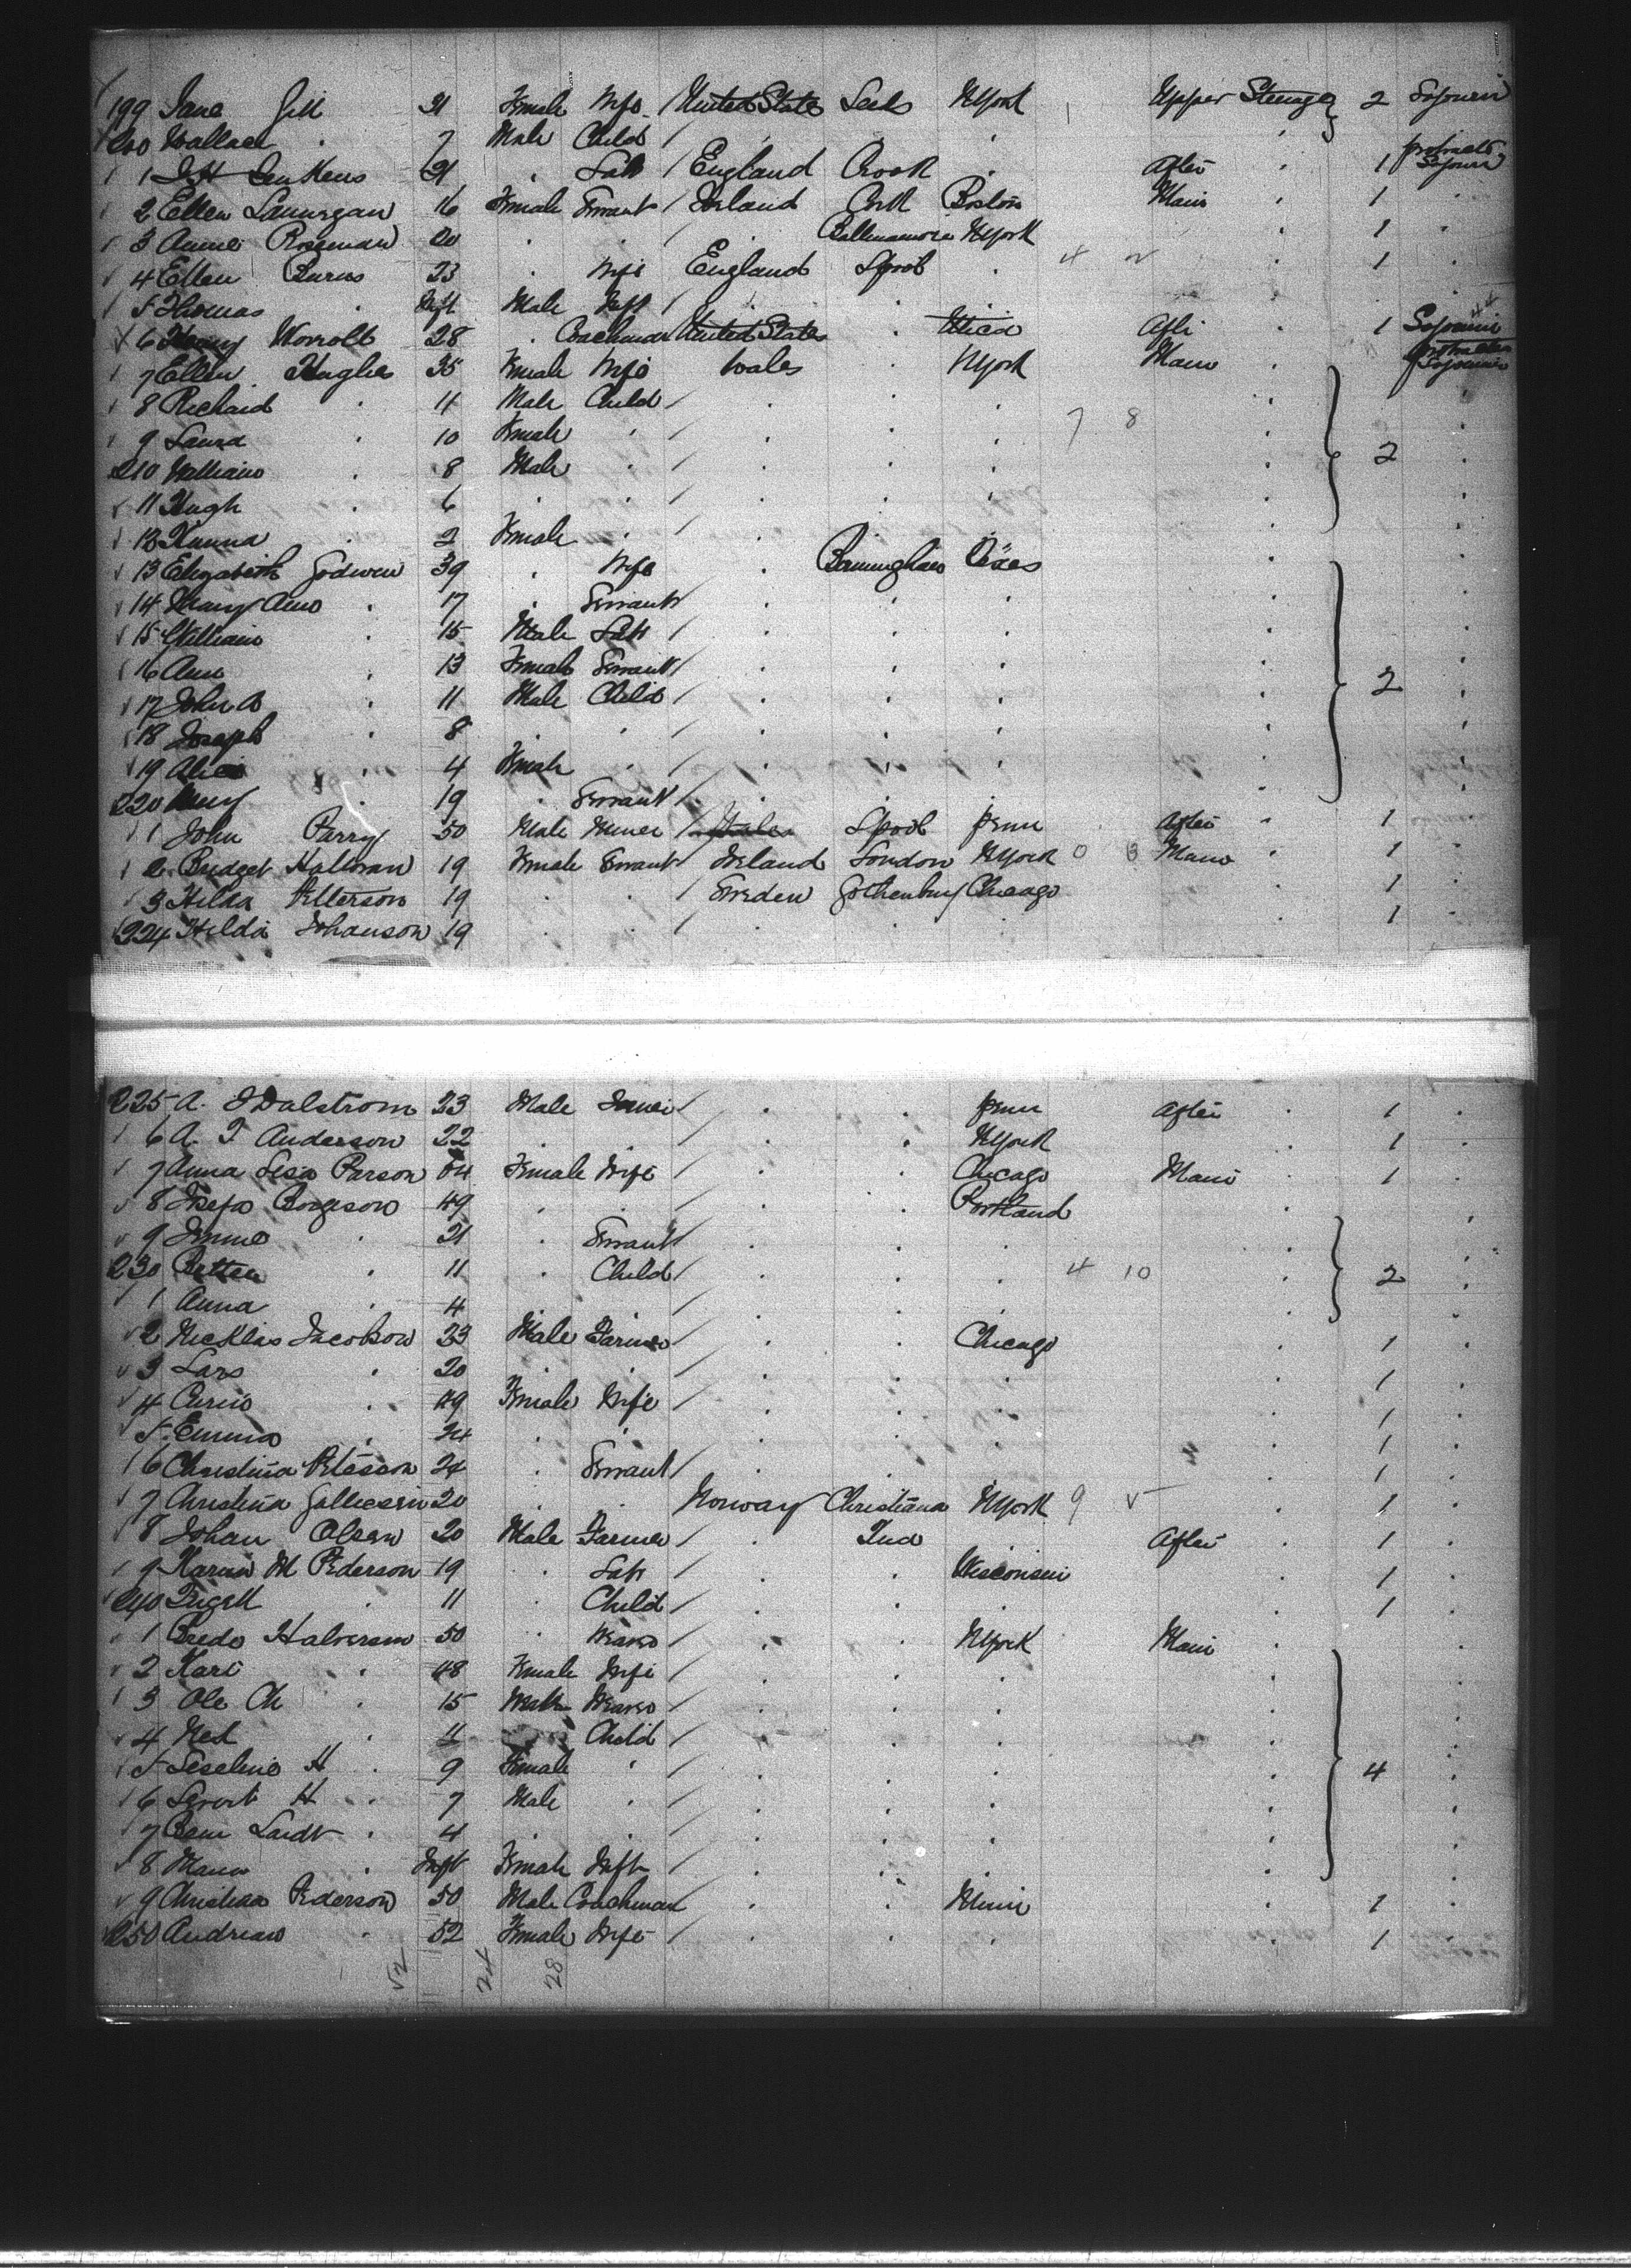 199 Jane Gill 31 Female Wife United States Leeds NYork Upper Steerage 2 Sojourn
200 Wallace . 7 Male Child / . . .
1 Jenkens 21 . Lab / England Crook . After . 1 protracted Sojourn
2 Ellen 16 Female Servant / Ireland Cork Boston Main . 1 .
3 Annie Roseman 20 . . / . NYork . 1 .
4 Ellen Burns 23 . Wife England Lpool . 4 2 . 1 .
5 Thomas . Inft Male Inft /
6 Henry Worroll 28 . Coachman United States . Utica After . 1 Sojourn
7 Ellen Hughes 35 Female Wife Wales . NYork Main . protracted Sojourn
8 Richard . 11 Male Child / . . . .
9 Laura . 10 Female . / . . . 7 8 .
210 William . 8 Male . / . . . . 2 .
11 Hugh . 6 . . / . . . . .
12 Hanna . 2 Female . / . .
13 Elizabeth Godwin 39 . Wife . Birmingham .
14 Mary Ann . 17 . Servant / . . . . .
15 William . 15 Male Lab / . . . . .
16 Ann . 13 Female Servant / . . . . .
17 John . 11 Male Child / . . . . 2 .
18 Joseph . 8 . . / . . . . .
19 Alice . 4 Female . / . . . . .
220 . 19 . Servant / . . . . .
1 John Parry 50 Male Miner / Wales Lpool Penn After . 1 .
2 Bridget Halloran 19 Female Servant Ireland London NYork 0 3 Main . 1 .
3 Hilda Petterson 19 . . / Sweden Gothenburg Chicago . 1 .
224 Hilda Johanson 19 . . / . . . . 1 .
225 A. J Dalstrom 23 Male / . . Penn After . 1 .
6 A. J Anderson 22 . . / . . NYork . 1 .
7 Anna Lisa Parson 64 Female Wife / . . Chicago Main . 1 .
8 Borgeson 49 . . / . . Portland .
9 . 21 . Servant / . . . . .
230 . 11 . Child / . . . 4 10 . 2 .
1 Anna . 4 . / . . . . .
2 Nicklas Jacobson 23 Male Farmer / . . Chicago . 1 .
3 Lars . 20 . . / . . . . 1 .
4 . 49 Female Wife / . . . . 1 .
5 Emma . 24 . . . . . . 1 .
6 Christina Peterson 24 . Servant / . . . . 1 .
7 Christina 20 . . Norway Christiana NYork 9 . 1 .
8 Johan Olsen 20 Male Farmer / . After . 1 .
9 M Pederson 19 . Lab / . . Wisconsin . 1 .
240 . 11 . Child / . . . . 1 .
1 Halverson 50 . / . . NYork Main .
2 Kari . 48 Female Wife / . . . . .
3 Ole Ch . 15 Male / . . . . .
4 . 11 . Child / . . . . .
5 H . 9 Female . / . . . . 4 .
6 H . 7 Male . / . . . . .
7 . 4 . . / . . . . .
8 . Inft Female Inft / . . . . .
9 Christian Pederson 50 Male Coachman . . Minn . 1 .
250 . 52 Female Wife . . . . 1 .
52 24 28